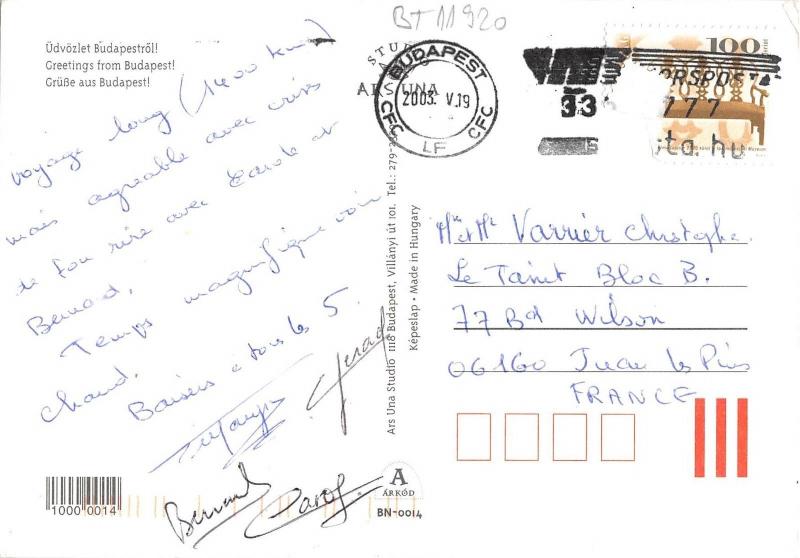 BT 11920
Üdvözlet Budapestről!
Greetings from Budapest!
Grüße aus Budapest!
voyage long (1400 kms)
mais agreable avec crises
de fou rire avec Carole et
Bernard.
Temps magnifique voir
chaud.
Baisers a tous les 5.
Gerard
Bernard
Carol
1000 0014
STUD
ARS UNA
BUDAPEST
2003. V.19
CFC CFC
LF
100
33
177
ta.hu
Ars Una Studio 1118 Budapest, Villányi út 101. Tel.: 279-
Képeslap • Made in Hungary
A
ÁRKÓD
BN-0014
Mme et Mr Varrier Christophe.
Le Tanit Bloc B.
77 Bd Wilson
06160 Juan les Pins
FRANCE